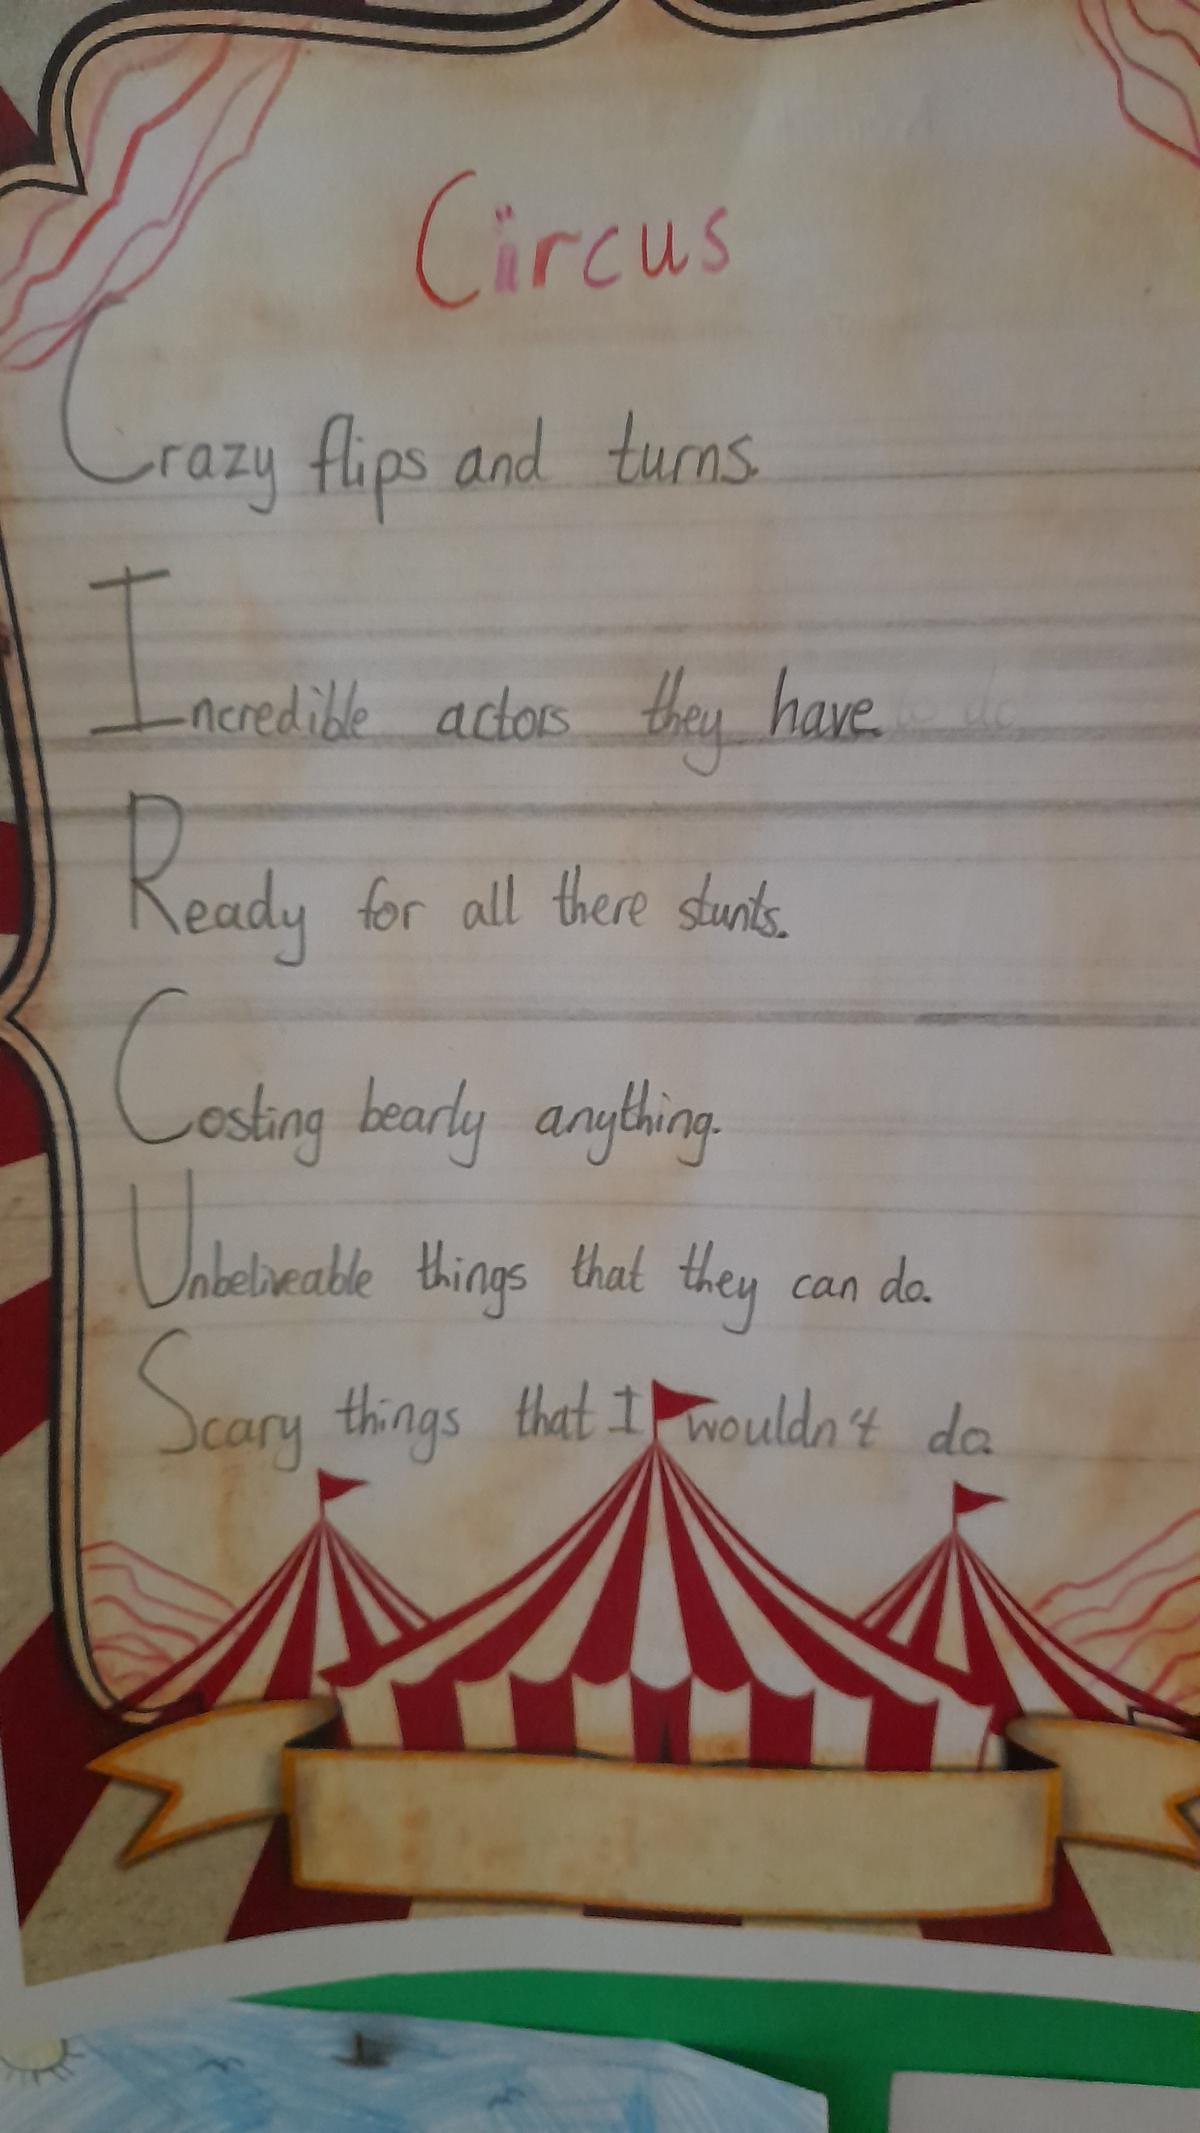 Circus
Crazy flips and turns.
Incredible actors they have.
Ready for all there stunts.
Costing bearly anything.
Unbeliveable things that they can do.
Scary things that I wouldn't do.